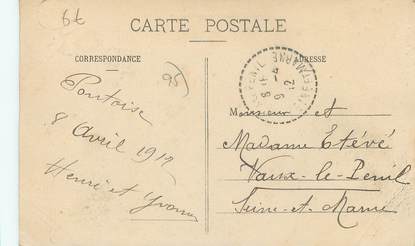 6€
CARTE POSTALE
CORRESPONDANCE
ADRESSE
95
Pontoise
8 Avril 1912
Henri et Yvonne
Monsieur et
Madame Etévé
Vaux-le-Penil
Seine-et-Marne
8 -4
12
MARNE